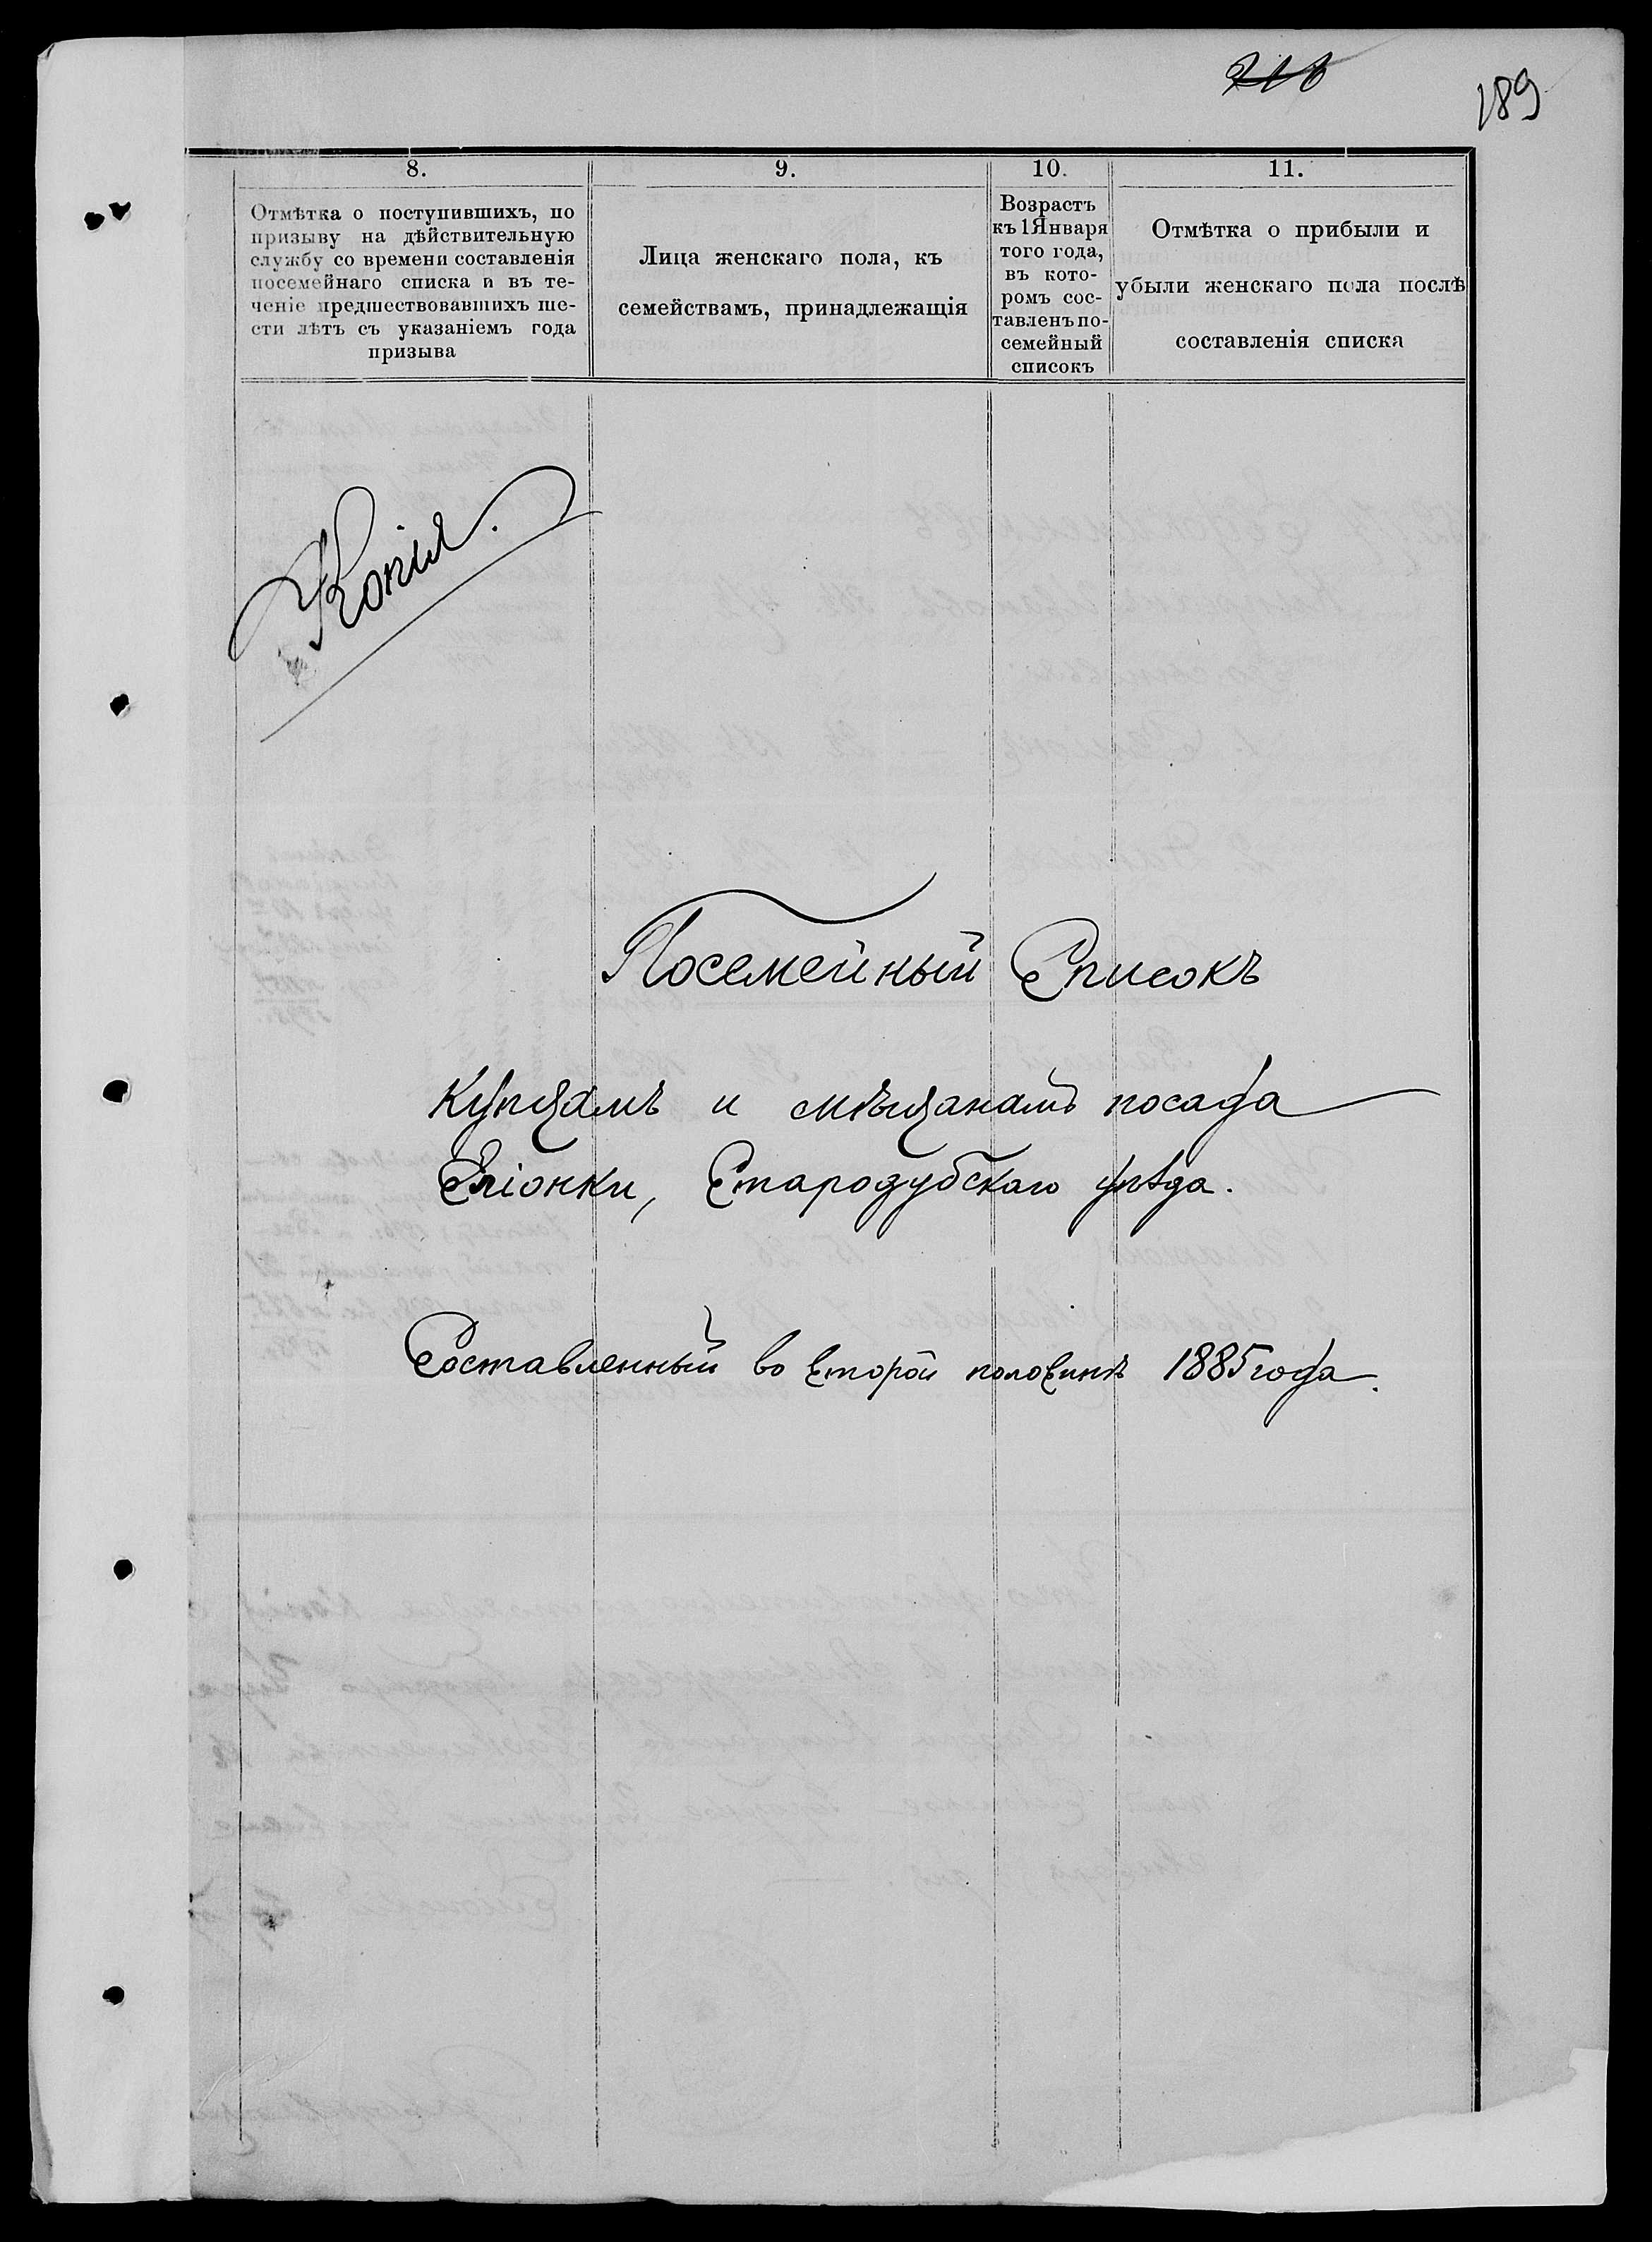 189
8.
9.
10.
11.
Отмѣтка о поступившихъ, по
призыву на дѣйствительную
службу со времени составленія
посемейнаго списка и въ те-
ченіе предшествовавшихъ ше-
сти лѣтъ съ указаніемъ года
призыва
Лица женскаго пола, къ
семействамъ, принадлежащія
Возрастъ
къ 1 Января
того года,
въ кото-
ромъ сос-
тавленъ по-
семейный
списокъ
Отмѣтка о прибыли и
убыли женскаго пола послѣ
составленія списка
Копія.
Посемейный Списокъ
купцамъ и мѣщанамъ посада
Еліонки, Стародубскаго уѣзда.
Составленный во второй половинѣ 1885 года.